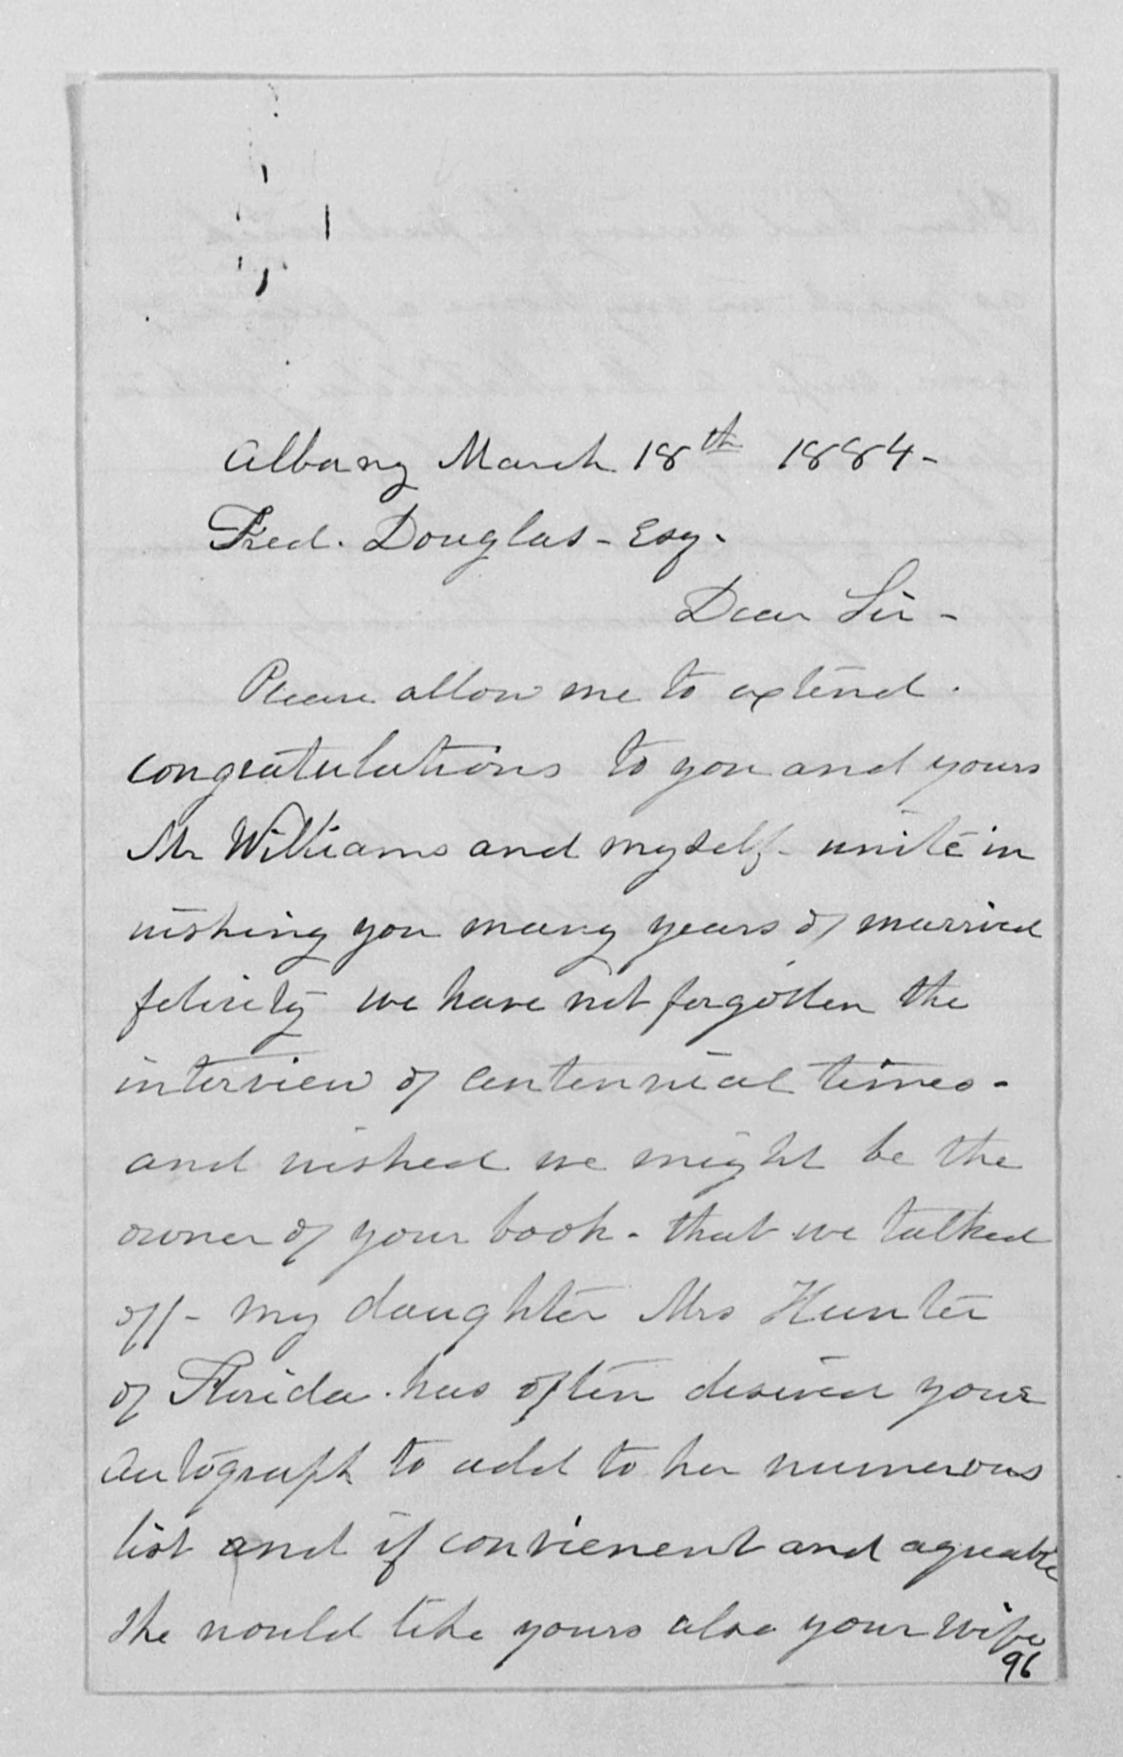 Albany March 18th 1884-
Fred. Douglas - Esq.
Dear Sir -
Please allow me to extend.
congratulations to you and yours
Mr Williams and myself - unite in
wishing you many years of married
felicity we have not forgotten the
interview of centennial times -
and wished we might be the
owner of your book - that we talked
off - my daughter Mrs Hunter
of Florida. has often desired your
autograph to add to her numerous
list and if convienent and agreable
she would like yours also your wife
96